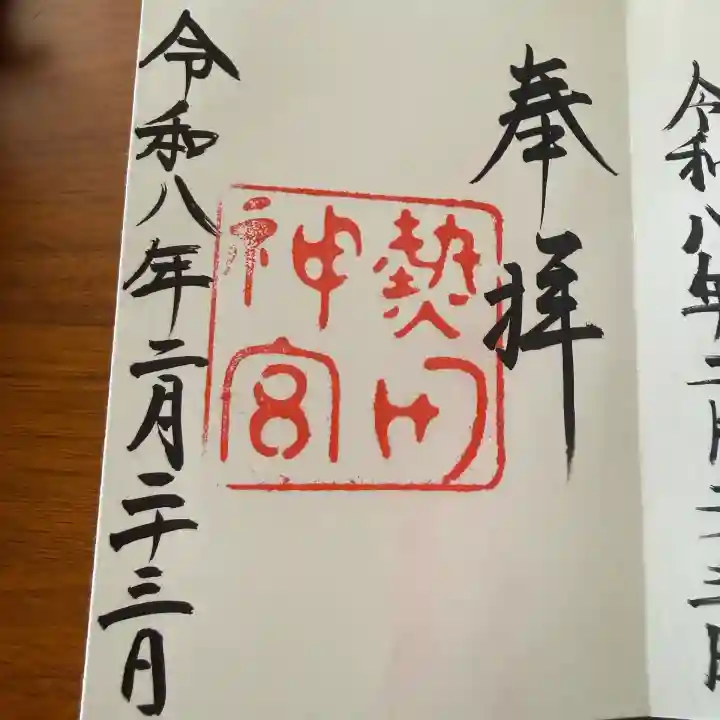 令和八年二月二十三日
奉拝
熱田
神宮
令和八年二月二十三日